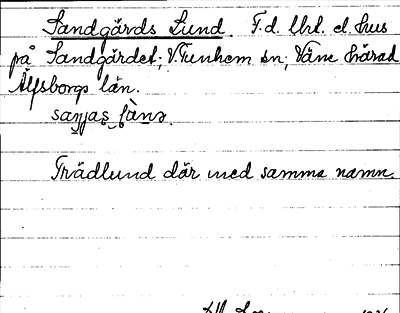 Sandgårds Lund. F.d. lht. el. hus
på Sandgärdet; V. Tunhem sn; Väne härad
Älfsborgs län.
Trädlund där med samma namn.